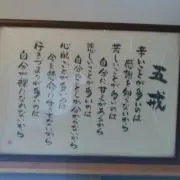 五戒
辛いことが多いのは
感謝を知らないから
苦しいことが多いのは
自分に甘えがあるから
悲しいことが多いのは
自分のことしか分らないから
心配ことが多いのは
今を懸命に生きていないから
行きづまりが多いのは
自分が裸になれないから